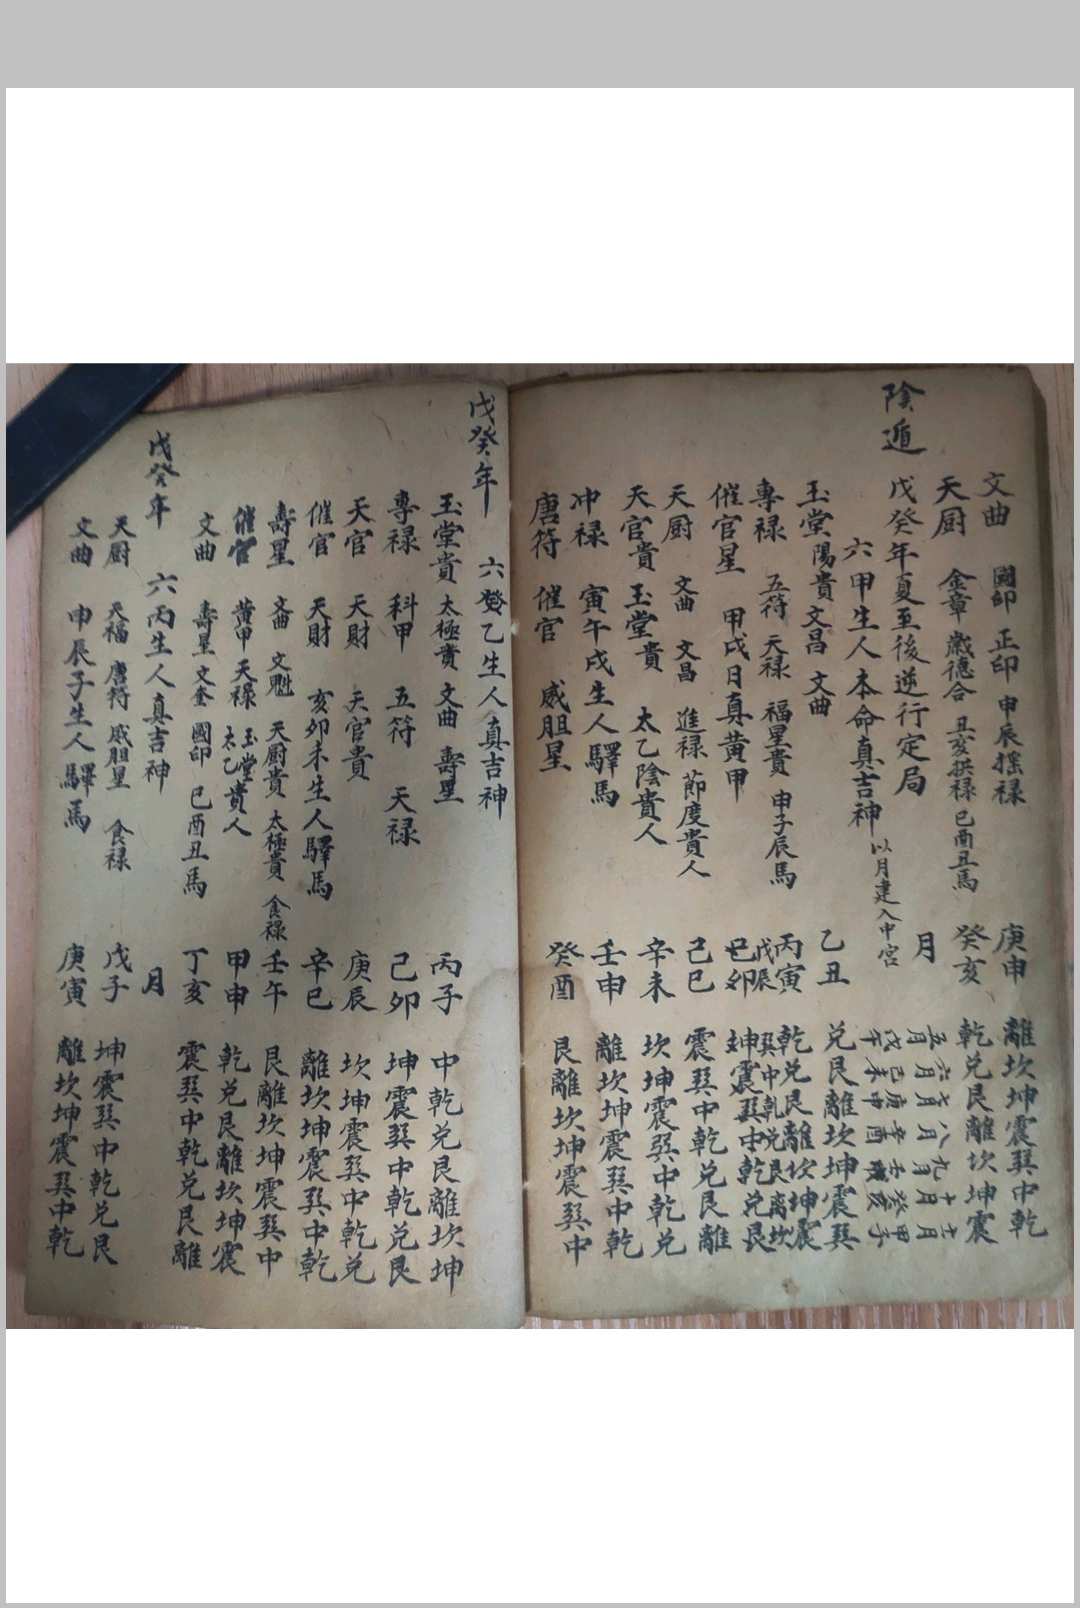 文曲 國印 正印 申辰摇禄 庚申 離坎坤震巽中乾
天厨 金章 歲德合 丑亥拱禄 巳酉丑馬 癸亥 乾兑艮離坎坤震
陰遁
戊癸年夏至後逆行定局 月 五月戊午 六月己未 七月庚申 八月辛酉 九月壬戌 十月癸亥 十一月甲子
六甲生人本命真吉神 以月建入中宮
玉堂陽貴 文昌 文曲 乙丑 兑艮離坎坤震巽
專禄 五符 天禄 福星貴 申子辰馬 丙寅 乾兑艮離坎坤震
戊辰 巽中乾兑艮離坎
催官星 甲戌日真黄甲 己卯 坤震巽中乾兑艮
天厨 文曲 文昌 進禄 節度貴人 己巳 震巽中乾兑艮離
天官貴 玉堂貴 太乙陰貴人 辛未 坎坤震巽中乾兑
冲禄 寅午戌生人驛馬 壬申 離坎坤震巽中乾
唐符 催官 威胆星 癸酉 艮離坎坤震巽中
戊癸年 六癸乙生人真吉神
玉堂貴 太極貴 文曲 壽星 丙子 中乾兑艮離坎坤
專禄 科甲 五符 天禄 己卯 坤震巽中乾兑艮
天官 天財 天官貴 庚辰 坎坤震巽中乾兑
催官 天財 亥卯未生人驛馬 辛巳 離坎坤震巽中乾
壽星 文曲 文魁 天厨貴 太極貴 食禄 壬午 艮離坎坤震巽中
催官 黄甲 天禄 玉堂貴 太乙貴人 甲申 乾兑艮離坎坤震
文曲 壽星 文奎 國印 巳酉丑馬 丁亥 震巽中乾兑艮離
戊癸年 六丙生人真吉神 月
天厨 天福 唐符 威胆星 食禄 戊子 坤震巽中乾兑艮
文曲 申辰子生人驛馬 庚寅 離坎坤震巽中乾